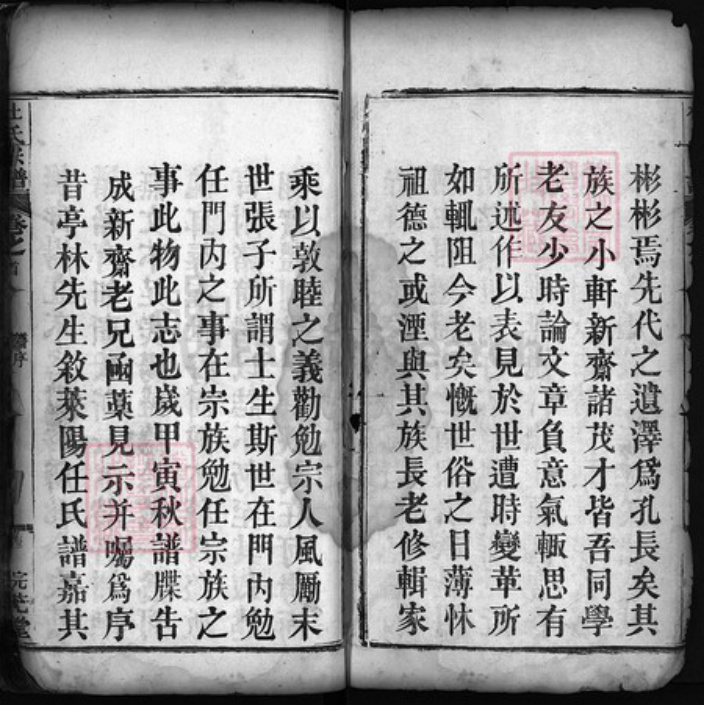 彬彬焉先代之遺澤爲孔長矣其
族之小軒新齋諸茂才皆吾同學
老友少時論文章負意氣輙思有
所述作以表見於世遭時變革所
如輒阻今老矣慨世俗之日薄怵
祖德之或湮與其族長老修輯家
乘以敦睦之義勸勉宗人風勵末
世張子所謂士生斯世在門內勉
任門內之事在宗族勉任宗族之
事此物此志也嵗甲寅秋譜牒告
成新齋老兄函藁見示并囑爲序
昔亭林先生敘萊陽任氏譜嘉其
杜氏族譜
卷之首